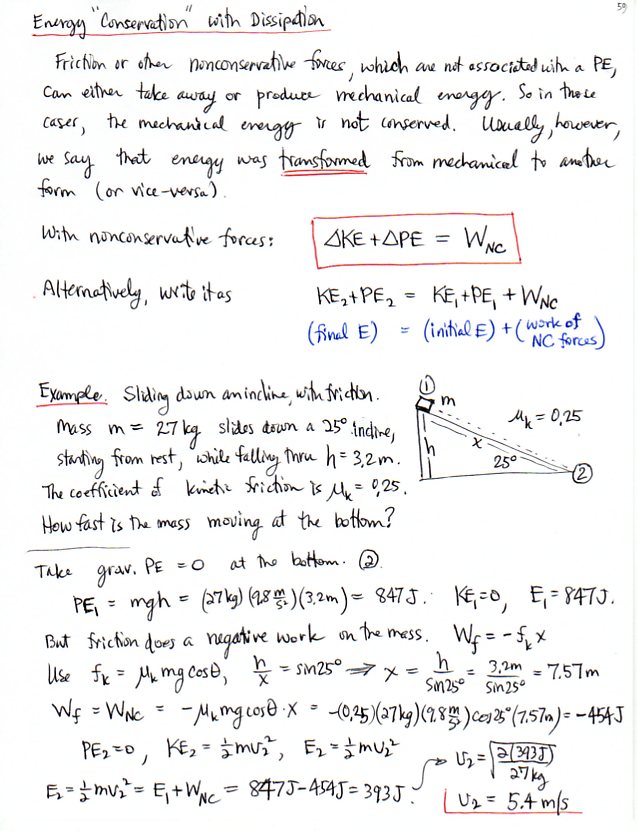 59
Energy "Conservation" with Dissipation
Friction or other nonconservative forces, which are not associated with a PE,
can either take away or produce mechanical energy. So in those
cases, the mechanical energy is not conserved. Usually, however,
we say that energy was transformed from mechanical to another
form (or vice-versa).
With nonconservative forces: ΔKE + ΔPE = W_NC
Alternatively, write it as KE₂+PE₂ = KE₁+PE₁ + W_NC
(final E) = (initial E) + (work of NC forces)
Example. Sliding down an incline, with friction.
Mass m = 27 kg slides down a 25° incline,
starting from rest, while falling thru h = 3,2 m.
The coefficient of kinetic friction is μ_k = 0,25.
How fast is the mass moving at the bottom?
① m
μ_k = 0,25
x
h
25°
②
Take grav. PE = 0 at the bottom. ②
PE₁ = mgh = (27 kg)(9,8 m/s²)(3,2m) = 847 J. KE₁=0, E₁=847J.
But friction does a negative work on the mass. W_f = -f_k x
Use f_k = μ_k mg cosθ, h/x = sin25° ⟹ x = h/sin25° = 3,2m/sin25° = 7.57m
W_f = W_NC = -μ_k mg cosθ · x = -(0,25)(27kg)(9,8 m/s²) cos25° (7,57m) = -454J
PE₂=0, KE₂ = ½mv₂², E₂ = ½mv₂²
E₂ = ½mv₂² = E₁ + W_NC = 847J - 454J = 393J.
v₂ = √(2(393J)/27kg)
v₂ = 5.4 m/s